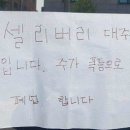 셀리버리 대주
입니다. 주가 폭등으로
폐업 합니다